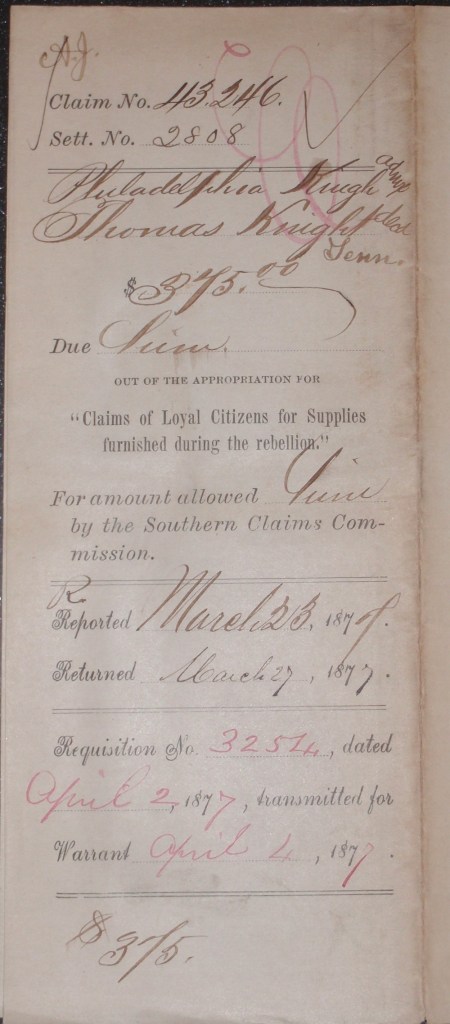 A.J.
Claim No. 43.246.
Sett. No. 2808
Philadelphia Knight admx
Thomas Knight decd
Tenn.
$375.00
Due
OUT OF THE APPROPRIATION FOR
"Claims of Loyal Citizens for Supplies
furnished during the rebellion."
For amount allowed
by the Southern Claims Com-
mission.
R.
Reported March 23, 1877.
Returned March 27, 1877.
Requisition No. 3254, dated
April 2, 1877, transmitted for
Warrant April 4, 1877.
$375.